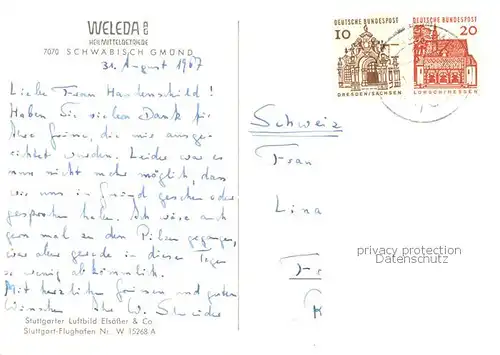 WELEDA AG
HEILMITTELBETRIEBE
7070 SCHWÄBISCH GMÜND
31. August 1967
Liebe Frau
Haben Sie vielen Dank für
Ihre Grüsse, die mir ausge-
richtet wurden. Leider war es
uns nicht mehr möglich, dass
wir uns in Gmünd gesehen oder
gesprochen haben. Ich wäre auch
gern mal zu den Pilzen gegangen,
war aber gerade in diesen Tagen
so wenig abkömmlich.
Mit herzlichen Grüssen und guten
Wünschen Ihr W.
Stuttgarter Luftbild Elsäßer & Co
Stuttgart-Flughafen Nr. W 15268 A
DEUTSCHE BUNDESPOST
10
DRESDEN/SACHSEN
DEUTSCHE BUNDESPOST
20
LORSCH/HESSEN
Schweiz
Frau
Lina
privacy protection
Datenschutz